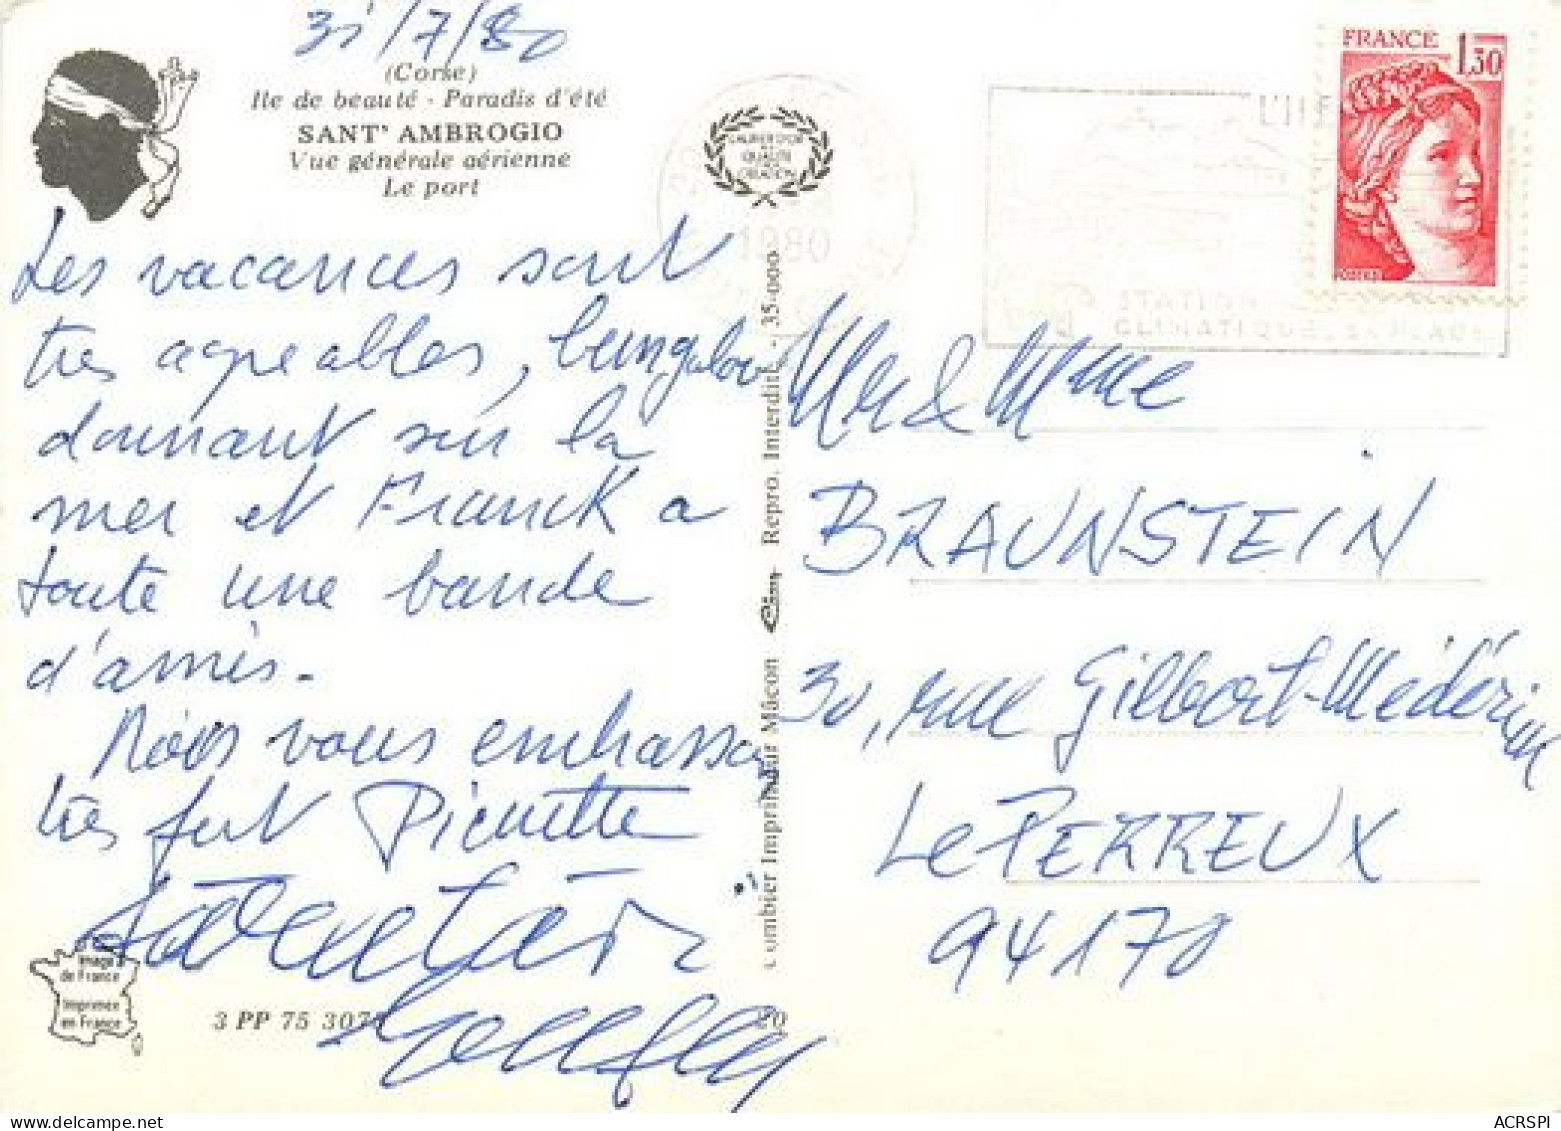 31/7/80
(Corse)
Ile de beauté - Paradis d'été
SANT' AMBROGIO
Vue générale aérienne
Le port
Les vacances sont
très agréables, bungalow
donnant sur la
mer et Franck a
toute une bande
d'amis.
Nous vous embrassons
très fort Pierrette
QUALITE
CREATION
1980
STATION
CLIMATIQUE
FRANCE
1,30
POSTES
Combier Imprimeur Mâcon
Cim
Repro. Interdite - 35-000
Mr & Mme
BRAUNSTEIN
30, rue Gilbert-Médéric
Le PERREUX
94170
Image
de France
Imprimée
en France
3 PP 75 307
20
ACRSPI